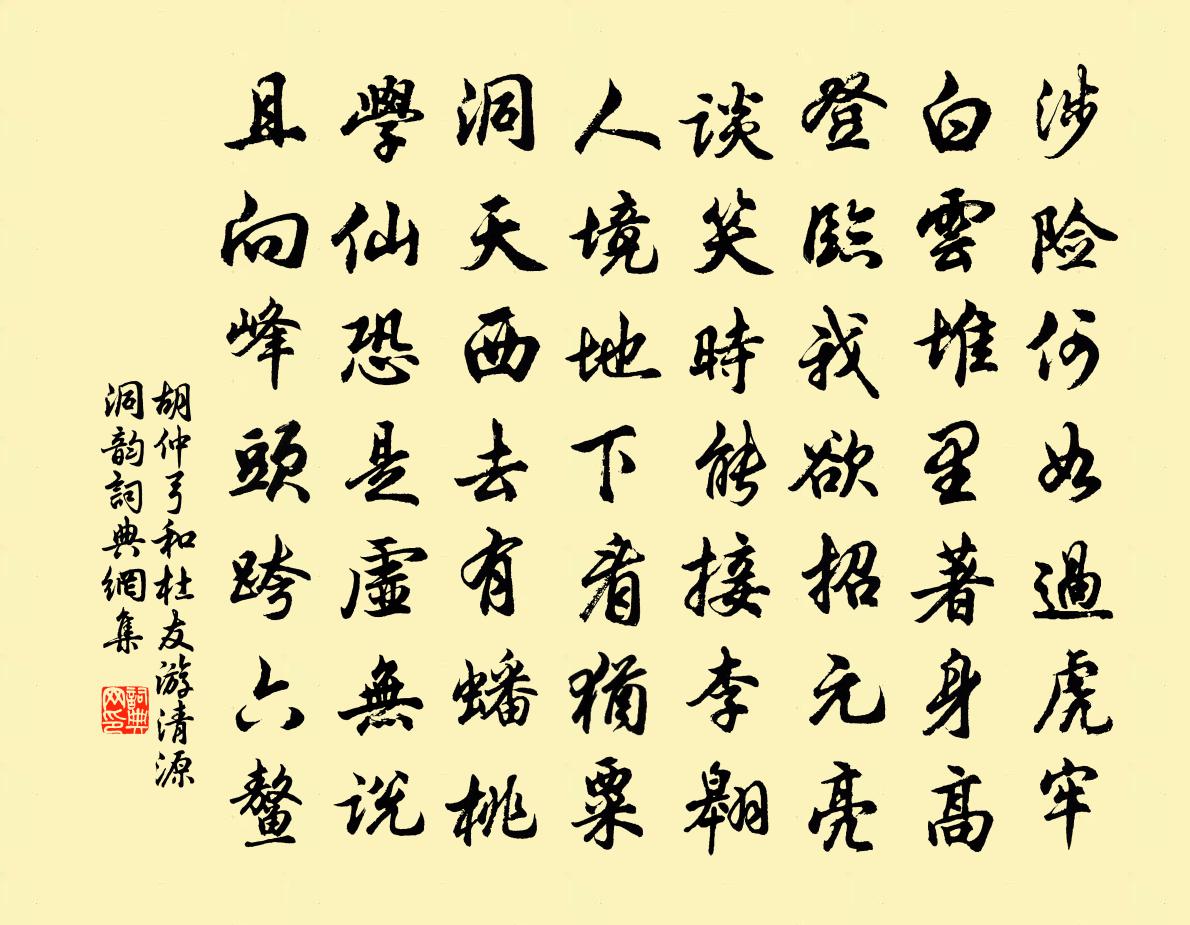 涉险何如過虎牢
白雲堆里著身高
登臨我欲招元亮
談笑時能接李翱
人境地下看猶粟
洞天西去有蟠桃
學仙恐是虛無说
且向峰頭跨六鳌
胡仲弓和杜友游清源
洞韵詞典網集
詞典
网印